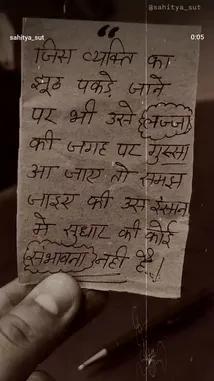 @sahity_sut
sahitya_sut 0:05
“
जिस व्यक्ति का
झूठ पकड़े जाने
पर भी उसे लज्जा
की जगह पर गुस्सा
आ जाए तो समझ
जाइए की उस इंसान
मे सुधार की कोई
संभावना नही है!